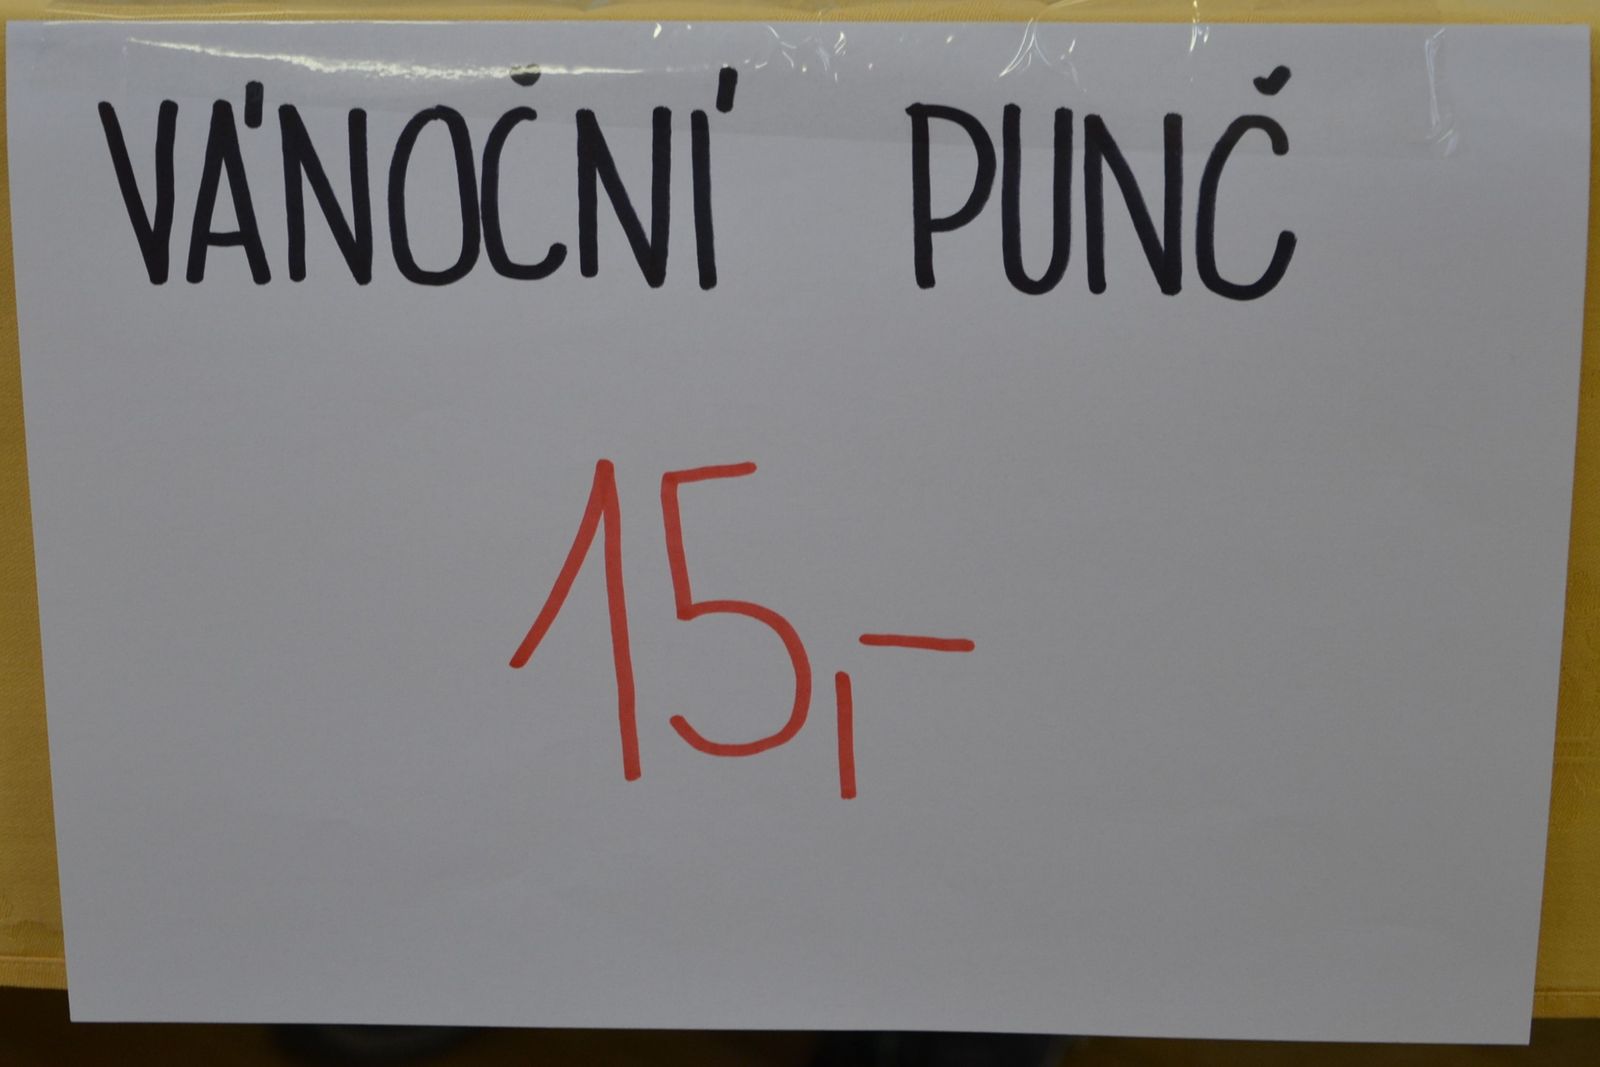 VÁNOČNÍ PUNČ
15,-